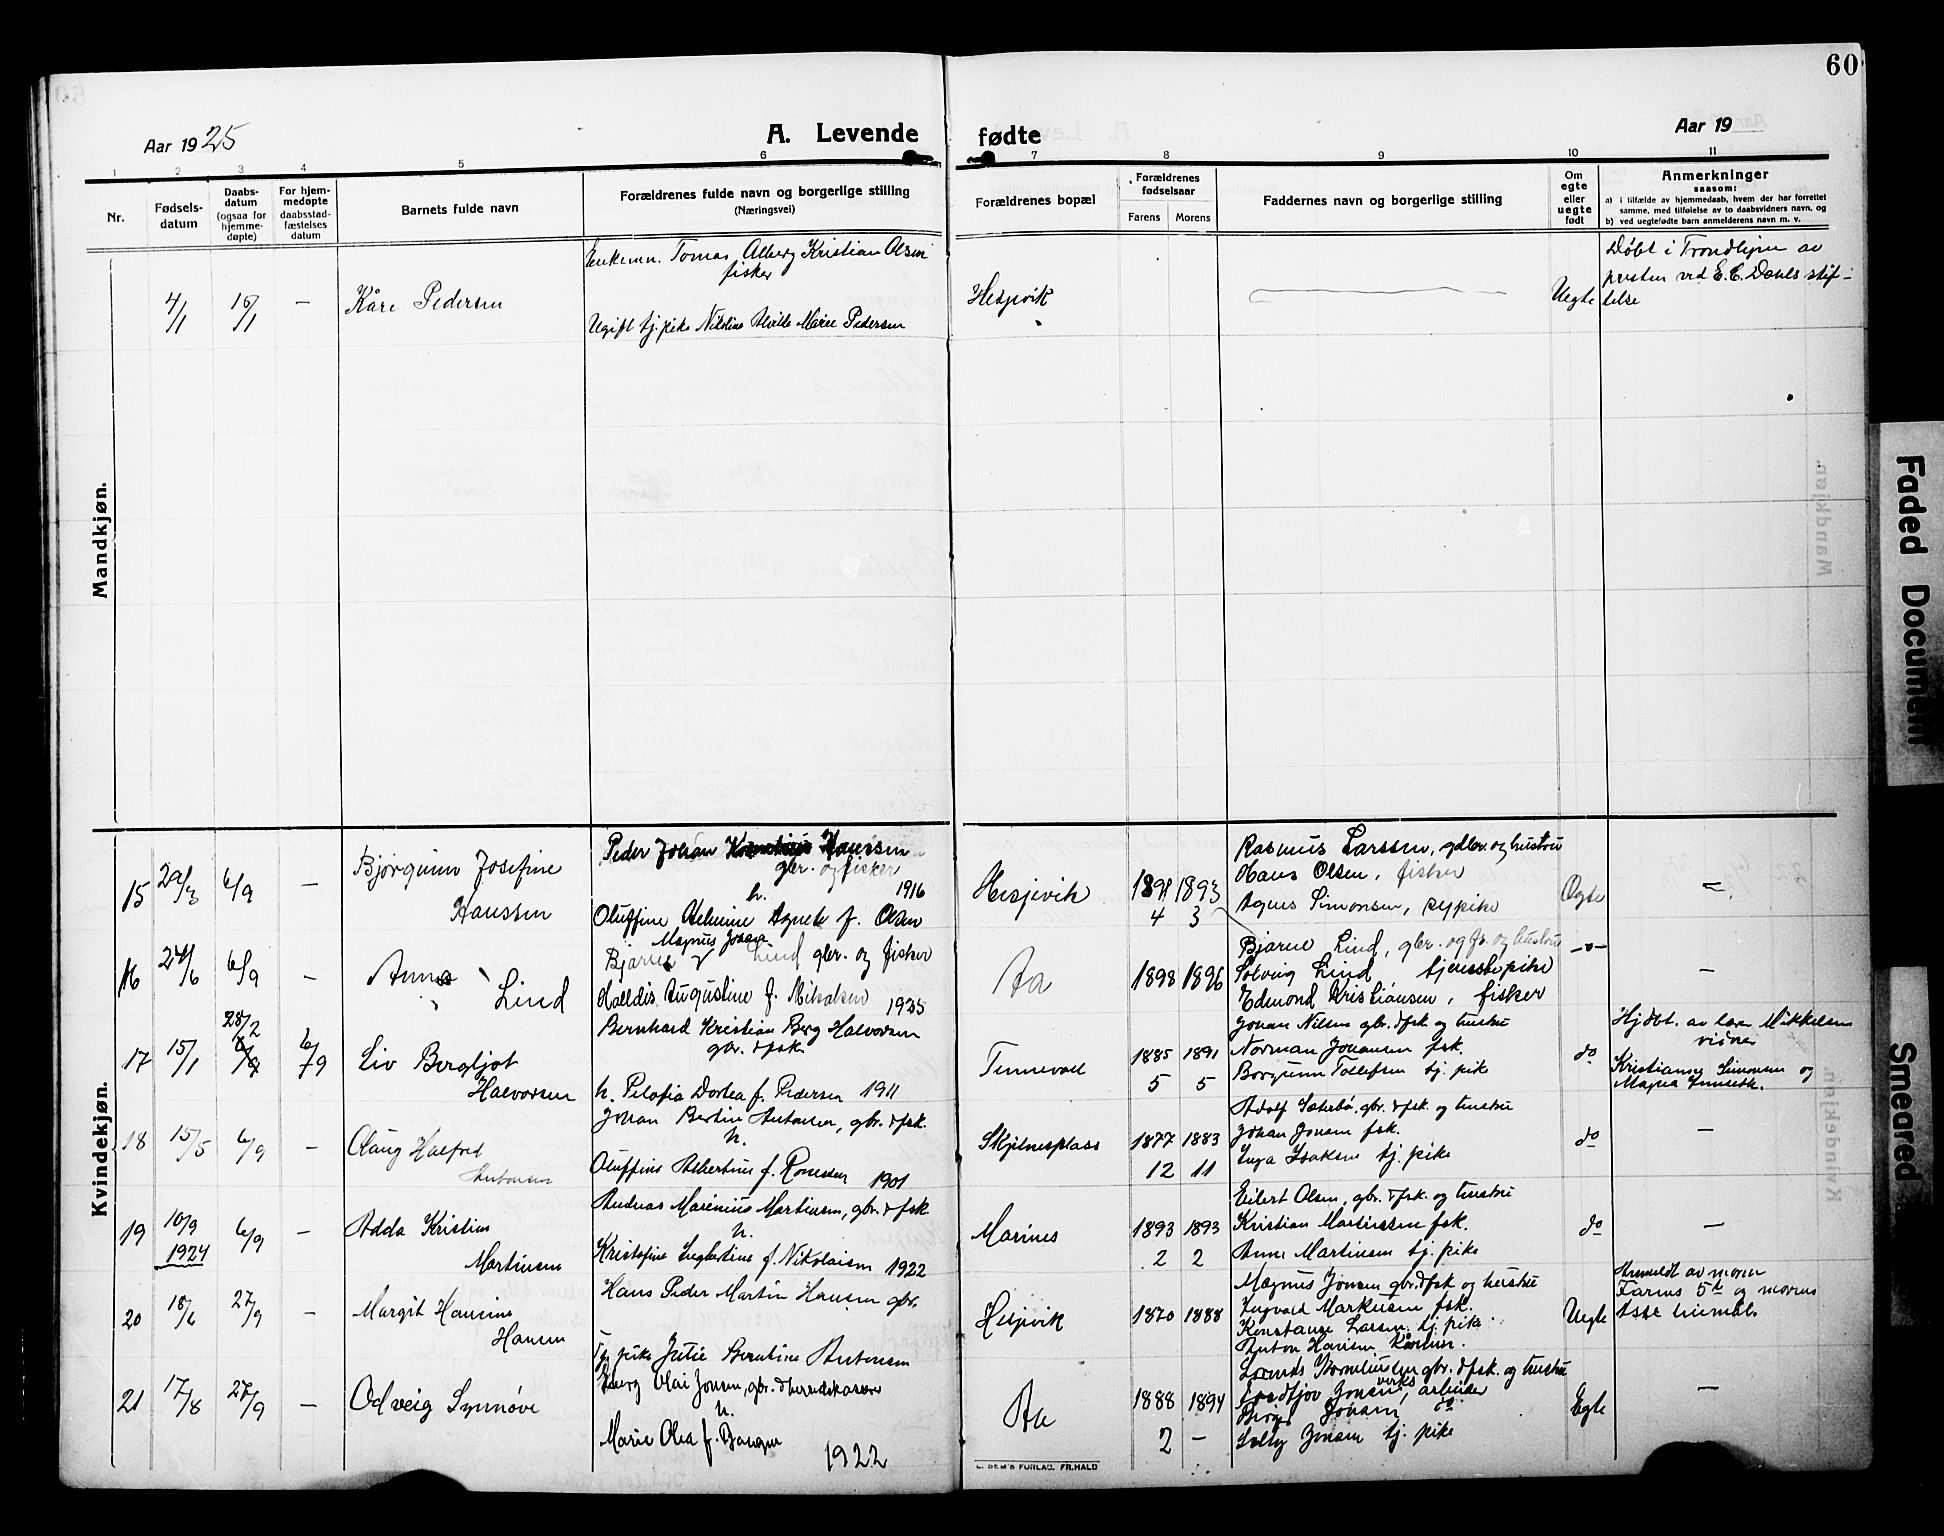 60
Aar 1925
A. Levende fødte
Aar 19
1 2 3 4 5 6 7 8 9 10 11
Nr.
Fødsels-
datum
Daabs-
datum
(ogsaa for
hjemme-
døpte)
For hjem-
medøpte
daabsstad-
fæstelses
datum
Barnets fulde navn
Forældrenes fulde navn og borgerlige stilling
(Næringsvei)
Forældrenes bopæl
Forældrenes
fødselsaar
Farens Morens
Faddernes navn og borgerlige stilling
Om
egte
eller
uegte
født
Anmerkninger
saasom:
a) i tilfælde av hjemmedaab, hvem der har forrettet
samme, med tilføielse av to daabsvidners navn, og
b) ved uegtefødte barn anmelderens navn m. v.
Mandkjøn.
4/1
— Kåre Pedersen
Enkemn. Tomas Alberg Kristian Olsen
fisker
Ugift tj. pike Nikoline Alvilde Marie Pedersen
Hesjevik
Uegte
Døbt i Trondhjem av
presten ved E. C. Dahls stif-
telse
Kvindekjøn.
15 29/3 6/9 —
Bjørgunn Josefine
Hanssen
Peder Johan Hanssen
gbr. og fisker
h. 1916
Oluffine Helmine Agnete f. Olsen
Hesjevik
1891 1893
4 3
Rasmus Larssen, gdbr. og hustru
Hans Olsen, fisker
Agnes Simonsen, sypike
Egte
—
16 24/6 6/9 —
Anna
Lind
Magnus Johan
Bjarne Lind gbr. og fisker
Halldis Augustine f. Mikalsen 1925
Aa
1898 1896
Bjarne Lind, gbr. og fs. og hustru
Solveig Lind tjenestepike
Edmond Kristiansen, fisker
—"—
—
17 15/1 28/2
6/9
6/9
Liv Bergljot
Halvorsen
Bernhard Kristian Berg Halvorsen
gbr. & fsk.
h. Pelofia Dortea f. Pedersen 1911
Tennevoll
1885 1891
5 5
Johan Nilsen gbr. & fsk. og hustru
Norman Johansen fsk.
Borgunn Tollefsen tj. pike
do
Hjdbt. av lær. Mikkelsen
Kristianna Simonsen og
18 15/5 6/9 —
Olaug Halfrid
Antonsen
Johan Bertin Antonsen, gbr. & fsk.
h.
Oluffine Albertine f. 1901
Skjelnesplass
1877 1883
12 11
Adolf Sæterbø, gbr. & fsk. og hustru
Johan Jensen fsk.
Inga Isaksen tj. pike
do
—
19 10/9
1924
6/9 —
Adda Kristine
Martinsen
Andreas Marenius Martinsen, gbr. & fsk.
h.
Kristofine Ingbertine f. Nikolaisen 1922
Marines
1893 1893
2 2
Eilert Olsen, gbr. & fsk. og hustru
Kristian Martinssen fsk.
Anne Martinsen tj. pike
do
—
20 18/6 27/9 —
Margit Hansine
Hansen
Hans Peder Martin Hansen gbr.
Tj. pike Jutie Berntine Antonsen
Hesjevik
1870 1888
Magnus Jensen gbr. & fsk og hustru
Ingvald Markusen fsk.
Konstanse Larsen tj. pike
Anton Hansen
Uegte
Anmeldt av moren
Farens 5te og morens
21 17/8 27/9 —
Odveig Synnøve
Olai Jensen, gbr. & herredskasserer
h.
Marie Olea f. 1922
Aa
1888 1894
2 —
gbr. & fsk. og hustru
Fredtjov Jensen, arbeider
Birger Jensen do
Solby Jensen tj. pike
Egte
—
FORLAG. FR.HALD
Faded Document
Smeared